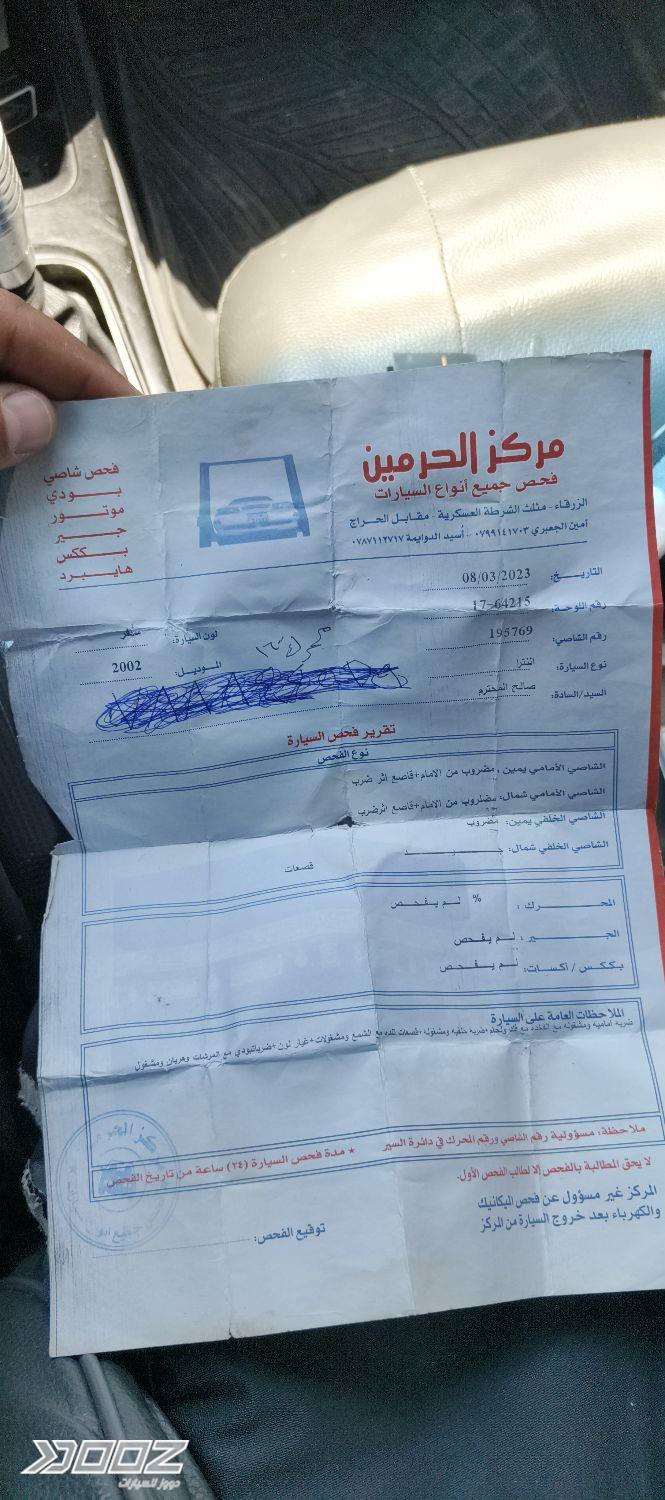 مركز الحرمين
فحص جميع أنواع السيارات
الزرقاء - مثلث الشرطة العسكرية - مقابل الحراج
أمين الجعبري ٠٧٩٩١٤١٧٠٣ - أسيد الدوايمة ٠٧٨٧١١٢٧١٧
فحص شاصي
بـــودي
موتور
جير
بككس
هايبرد
التاريخ: 08/03/2023
رقم اللوحة: 17-64215
لون السيارة:
رقم الشاصي: 195769
الموديل: 2002
نوع السيارة: النترا
السيد/السادة: صالح المحترم
تقرير فحص السيارة
نوع الفحص
الشاصي الأمامي يمين: مضروب من الامام+قاصع اثر ضرب
الشاصي الأمامي شمال: مضروب من الامام+قاصع اثرضرب
الشاصي الخلفي يمين: مضروب
الشاصي الخلفي شمال: جـــيـــد
قصعات
المحــرك: % لم يفحص
الجـــير: لم يفحص
بككس / أكسات: لم يفحص
الملاحظات العامة على السيارة
ضربه اماميه ومشغوله مع فك ولحام+ضربه خلفيه ومشغوله+قصعات مع الشمع ومشغولات+غيار لون+ضرباتبودي مع المرشات وهريان ومشغول
ملاحظة: مسؤولية رقم الشاصي ورقم المحرك في دائرة السير * مدة فحص السيارة (٢٤) ساعة من تاريخ الفحص
لا يحق المطالبة بالفحص إلا لطالب الفحص الأول.
المركز غير مسؤول عن فحص الميكانيك
والكهرباء بعد خروج السيارة من المركز
توقيع الفحص:
DOOZ
دووز للسيارات